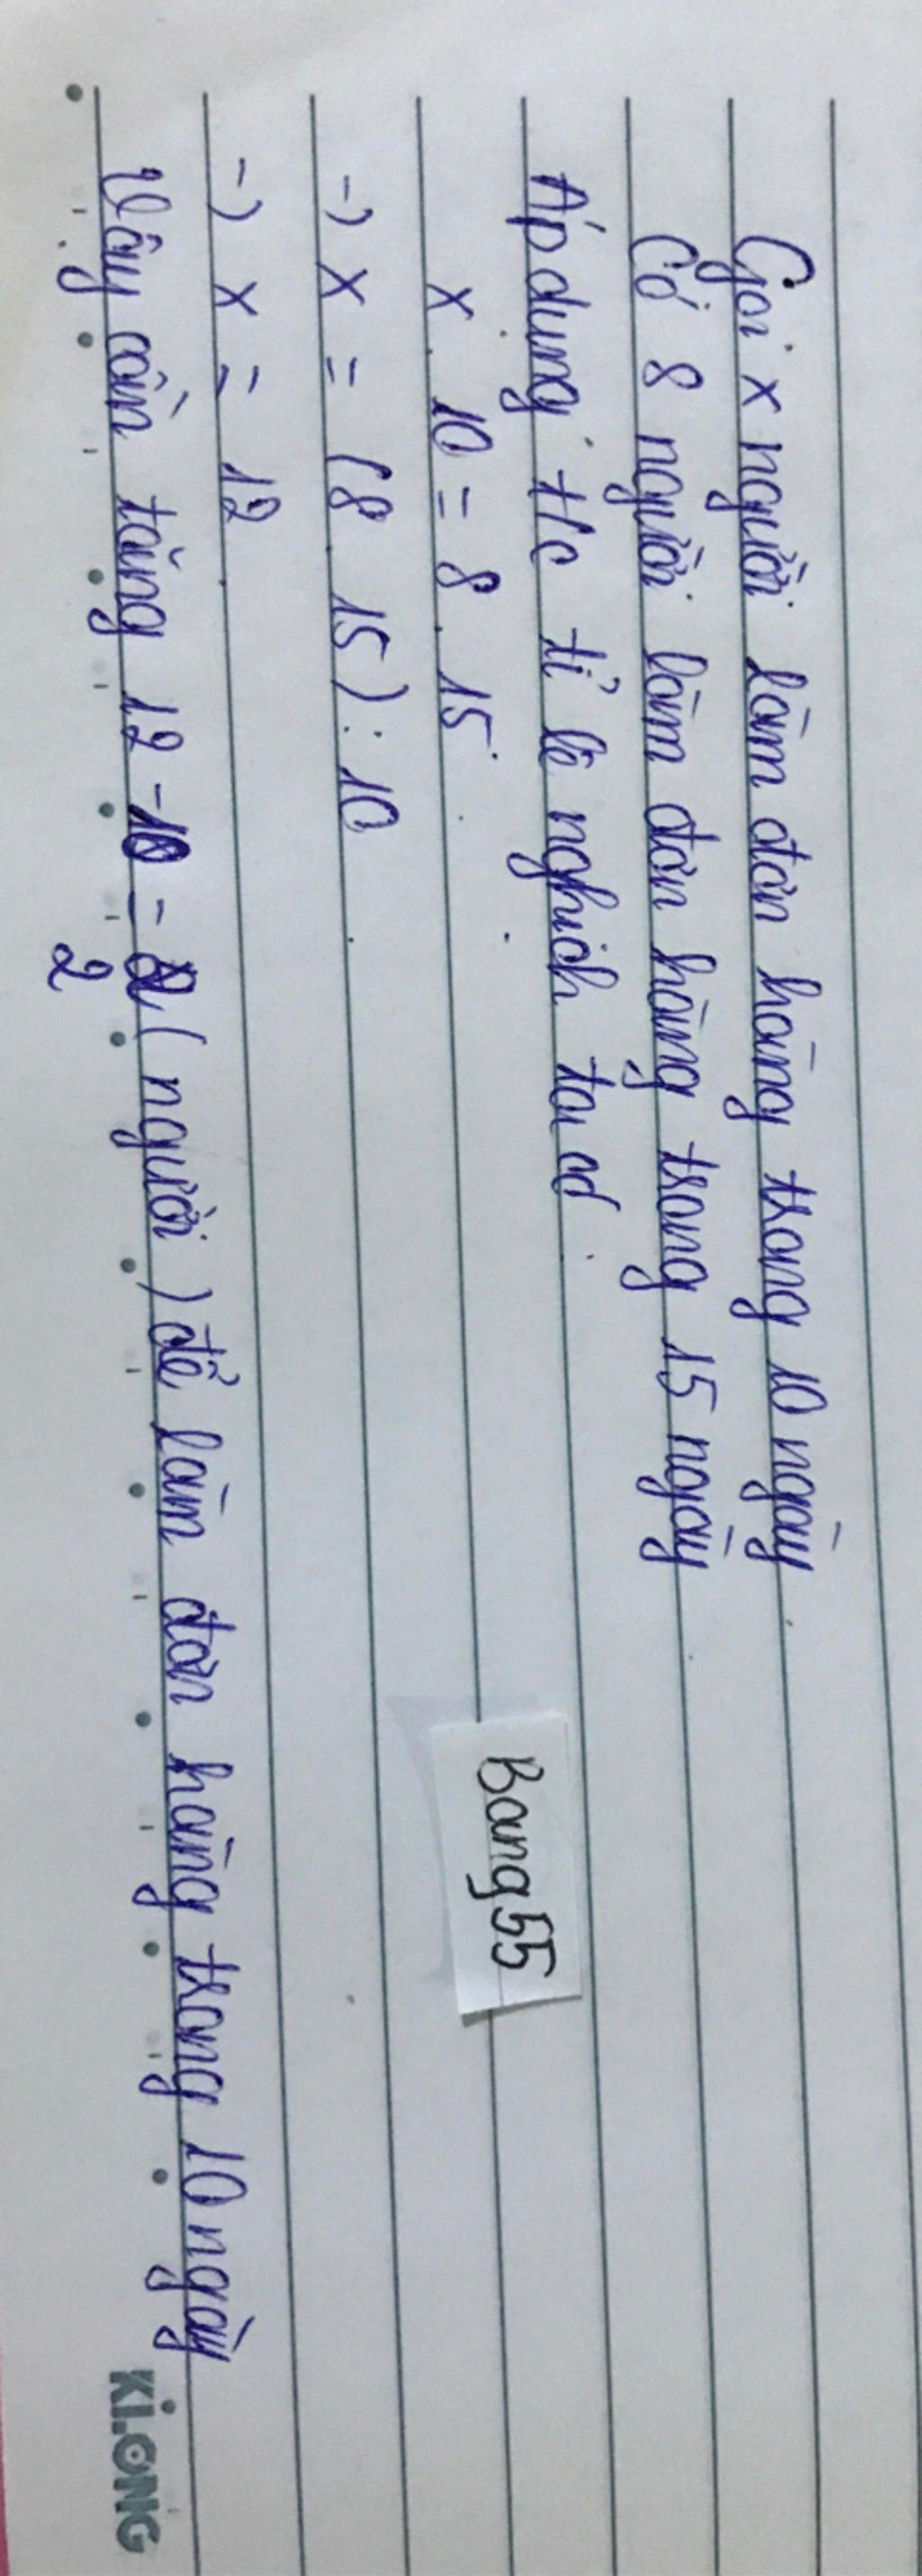 Gọi x người làm đơn hàng trong 10 ngày
Có 8 người làm đơn hàng trong 15 ngày
Áp dụng t/c tỉ lệ nghịch ta có
x . 10 = 8 . 15
-) x = (8 . 15) : 10
-) x = 12
Vậy cần tăng 12 - 10 = 2 (người) để làm đơn hàng trong 10 ngày
2
Bang55
KI.ONG